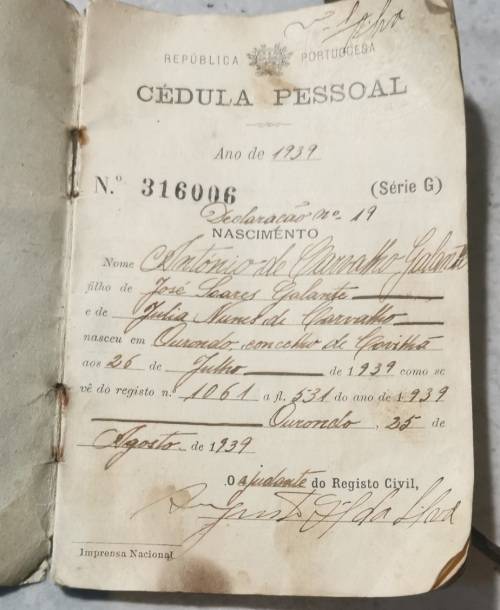 REPÚBLICA PORTUGUESA
CÉDULA PESSOAL
Ano de 1939
N.º 316006 (Série G)
Declaração nº 19
NASCIMENTO
Nome António de Carvalho Galante
filho de José Soares Galante
e de Julia Nunes de Carvalho
nasceu em Ourondo, concelho de Covilhã
aos 26 de Julho de 1939 como se
vê do registo n.º 1061 a fl. 531 do ano de 1939
Ourondo, 25 de
Agosto de 1939
O ajudante do Registo Civil,
da Silva
Imprensa Nacional